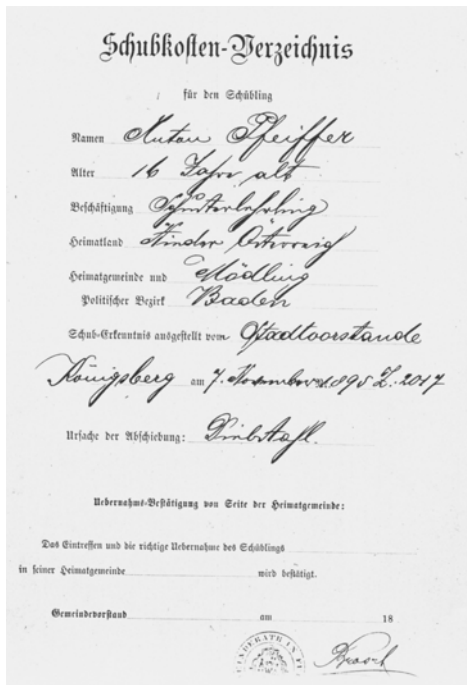 Schubkosten-Verzeichnis
für den Schübling
Namen Anton Pfeiffer
Alter 16 Jahre alt
Beschäftigung Schusterlehrling
Heimatland Nieder Österreich
Heimatgemeinde und Mödling
Politischer Bezirk Baden
Schub-Erkenntnis ausgestellt vom Stadtvorstande
Königsberg am 7. November 1895 Z. 2017
Ursache der Abschiebung: Diebstahl.
Uebernahms-Bestätigung von Seite der Heimatgemeinde:
Das Eintreffen und die richtige Uebernahme des Schüblings
in seiner Heimatgemeinde wird bestätigt.
Gemeindevorstand am 18